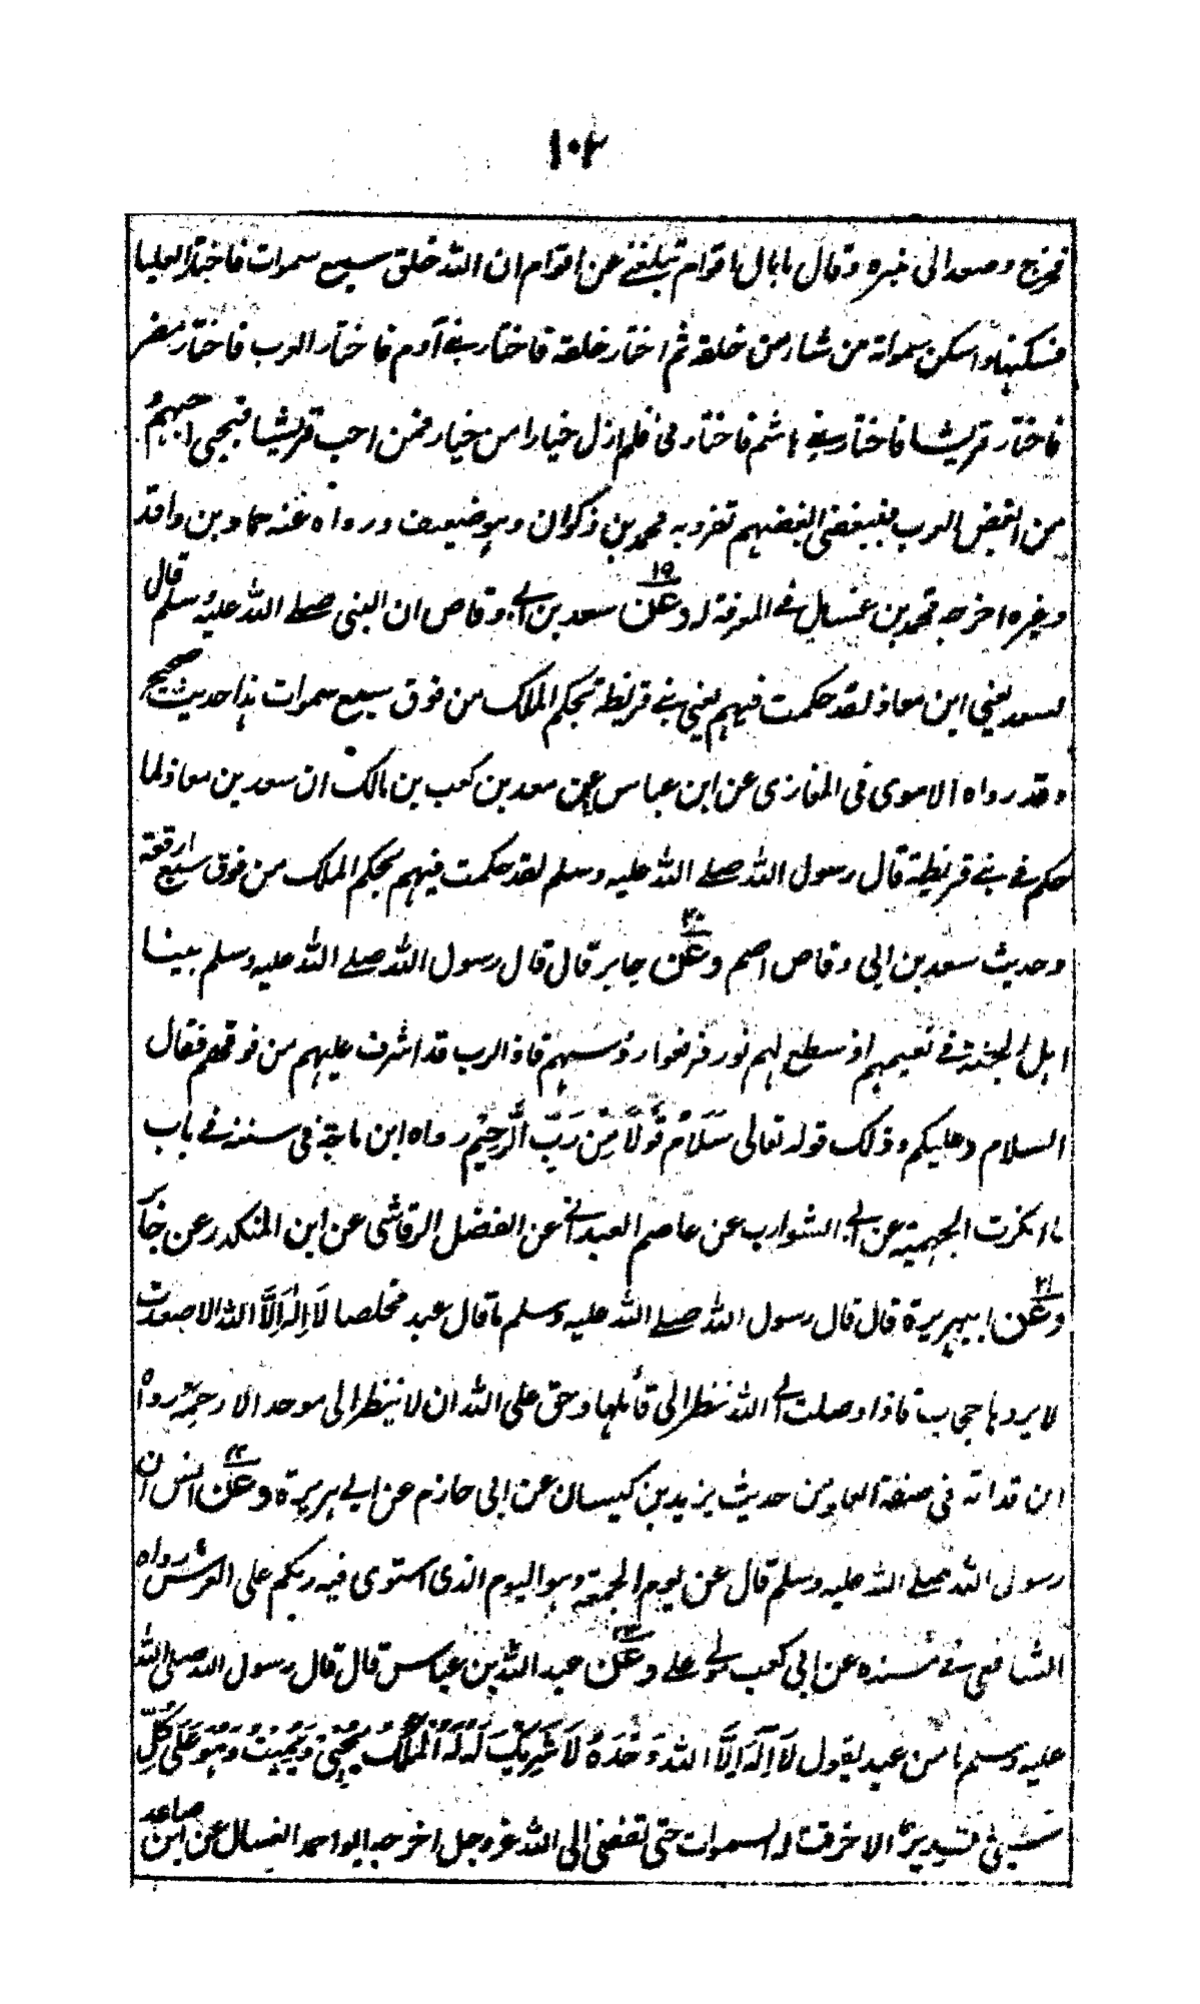 ١٠٢
فخرج وصعد الى منبره وقال ما بال اقوام تبلغنے عن اقوام ان الله خلق سبع سموات فاختار العليا
فسكنها واسكن سمواته من شاء من خلقه ثم اختار خلقه فاختار بنے آدم فاختار العرب فاختار مضر
فاختار قريشا فاختار بنے هاشم فاختارنى فلم ازل خيارا من خيار فمن احب قريشا فبحبى احبهم و
من ابغض العرب فببغضى ابغضهم تفرد به محمد بن ذكوان وهو ضعيف ورواه عنه حماد بن واقد
وغيره اخرجه محمد بن عسال فے المعرفة له وعن ١٩ سعد بن ابے وقاص ان النبى صلے الله عليه وسلم قال
لسعد يعنى ابن معاذ لقد حكمت فيهم يعنى بنے قريظة بحكم الملك من فوق سبع سموات هذا حديث صحيح
وقد رواه الاموى فى المغازى عن ابن عباس عن معبد بن كعب بن مالك ان سعد بن معاذ لما
حكم فے بنے قريظة قال رسول الله صلے الله عليه وسلم لقد حكمت فيهم بحكم الملك من فوق سبع ارقعة
وحديث سعد بن ابى وقاص اصح وعن ٢٠ جابر قال قال رسول الله صلے الله عليه وسلم بينا
اهل الجنة فے نعيمهم اذ سطع لهم نور فرفعوا رؤسهم فاذ الرب قد اشرف عليهم من فوقهم فقال
السلام عليكم وذلك قوله تعالى سَلَامٌ قَوْلًا مِنْ رَبٍّ الرَّحِيْمِ رواه ابن ماجة فى سننه فے باب
ما انكرت الجهمية عن ابے الشوارب عن عاصم العبدانے عن الفضل الرقاشى عن ابن المنكدر عن جابر
وعن ٢١ ابيهريرة قال قال رسول الله صلے الله عليه وسلم ما قال عبد مخلصا لَا اِلٰهَ اِلَّا الله الا صعدت
لا يردها حجاب فاذا وصلت الے الله نظر الى قائلها وحق على الله ان لا ينظر الى موحد الا رحمه رواه
ابن قدامة فى صفة العلو من حديث يزيد بن كيسان عن ابى حازم عن ابے هريرة وعن ٢٢ انس ان
رسول الله صلے الله عليه وسلم قال عن يوم الجمعة وهو اليوم الذى استوى فيه ربكم على العرش رواه
الشافعى فے مسنده عن ابى كعب وعن ٢٣ عبد الله بن عباس قال قال رسول الله صلى الله
عليه وسلم ما من عبد يقول لَا اِلٰهَ اِلَّا الله وَحْدَهُ لَا شَرِيْكَ لَهُ لَهُ الْمُلْكُ يُحْيِىْ وَيُمِيْتُ وَهُوَ عَلَى كُلِّ
شىء قدير الا خرقت له السموات حتى تفضى الى الله عز وجل اخرجه ابو احمد العسال عن ابن صاعد